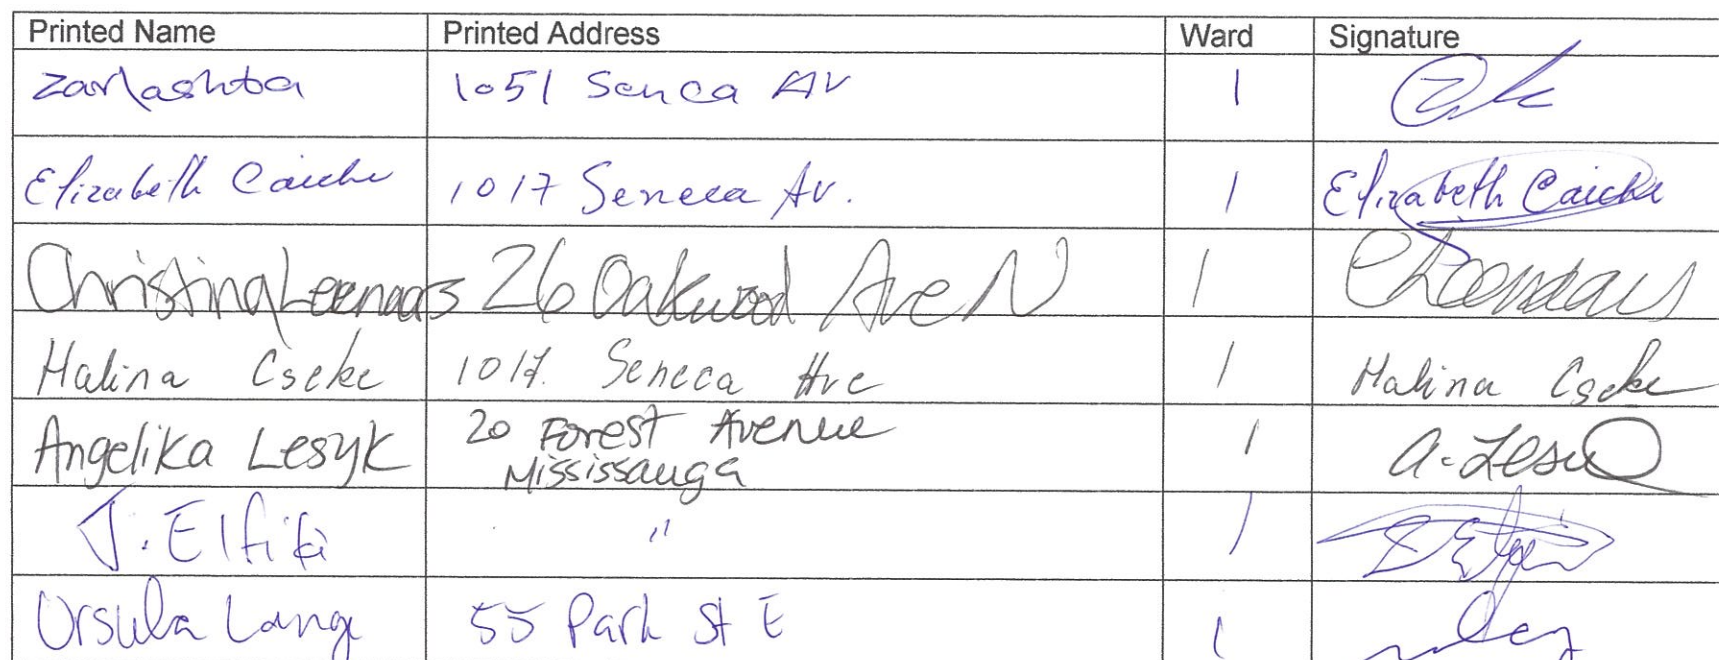 Printed Name Printed Address Ward Signature
Zarlashta 1051 Senca AV 1
Elizabeth Caicke 1017 Seneca Av. 1 Elizabeth Caicke
Christina Leenaars 26 Oakwood Ave N 1 CLeenaars
Halina Cseke 1017. Seneca Ave 1 Halina Cseke
Angelika Lesyk 20 Forest Avenue 1 A. Lesyk
Mississauga
J. Elfiki " 1
Ursula Lange 55 Park St E 1